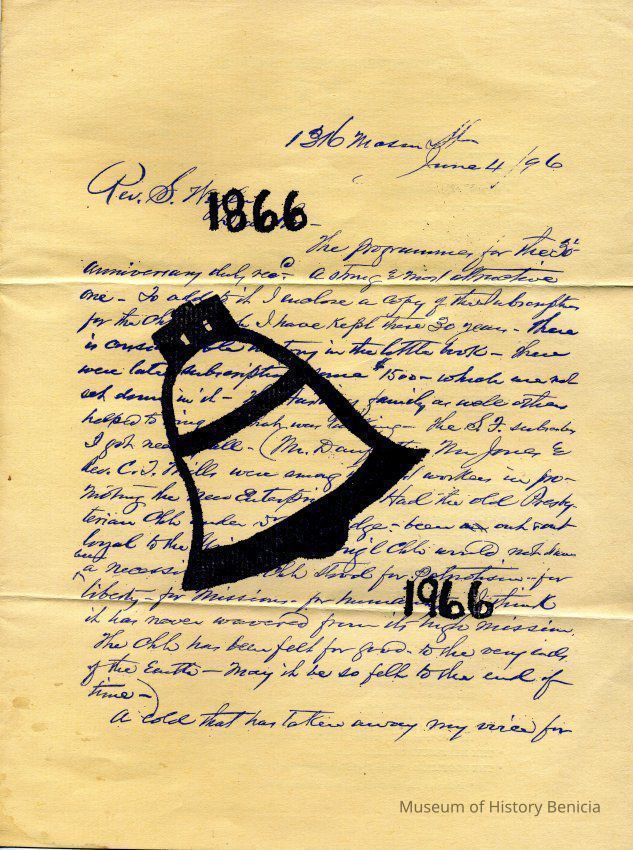 1316 Mason St
June 4 / 96
Rev. S.
1866
The programmes for the 30th
anniversary duly rec'd. A strong & most attractive
one - To add to it I enclose a copy of the subscription
for the Chh I have kept these 30 years - there
is history in the little book - there
were later some $1500 - which are not
set down in it - family as well others
helped to what was - The S.F.
I got all - (Mr. Mr Jones &
Rev. C. T. Mills were among workers in pro-
moting the new Enterprise Had the old Presby-
terian Chh under been out & out
loyal to the Cong'l Chh would not have
been
a Chh stood for Patriotism - for
liberty - for missions - for I think
1966
it has never wavered from its high mission.
The Chh has been felt for good - to the very ends
of the Earth - May it be so felt to the end of
time -)
A cold that has taken away my voice for
Museum of History Benicia